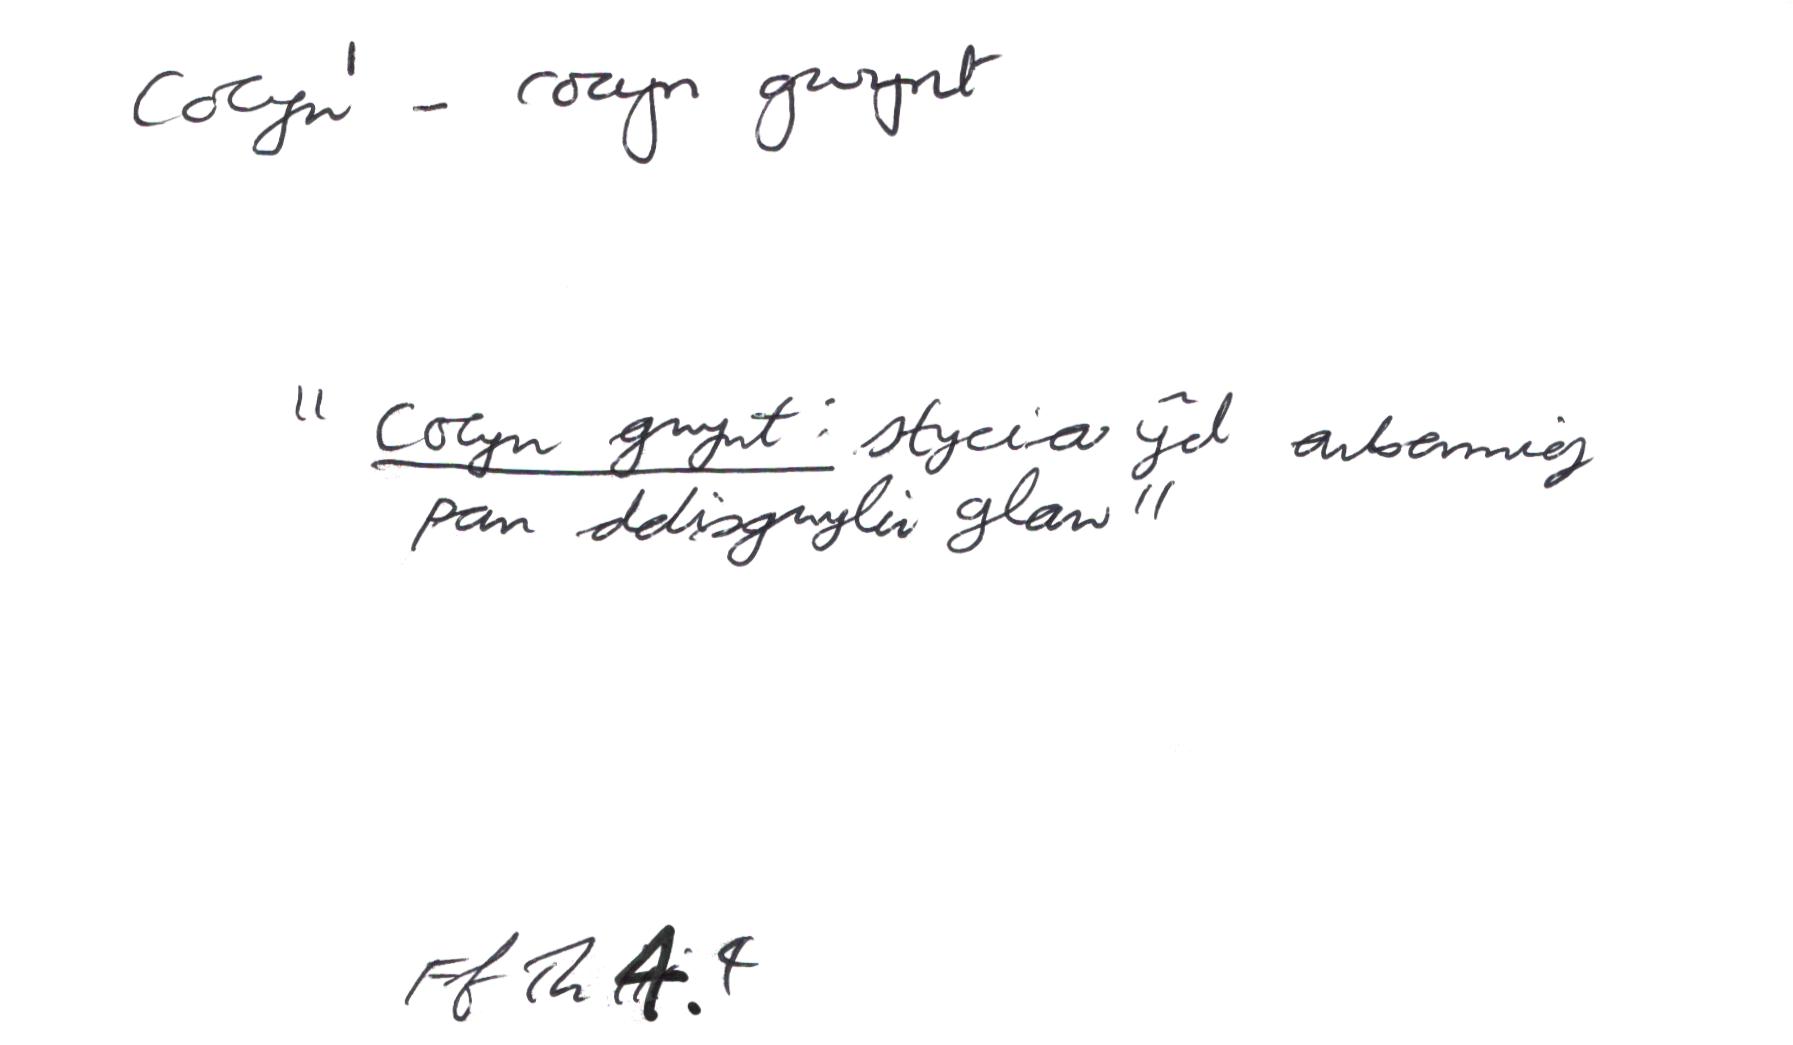 Cocyn¹ - cocyn gwynt
"Cocyn gwynt: stycia ŷd arbennig
pan ddisgwylir glaw"
Ff Th 4.4